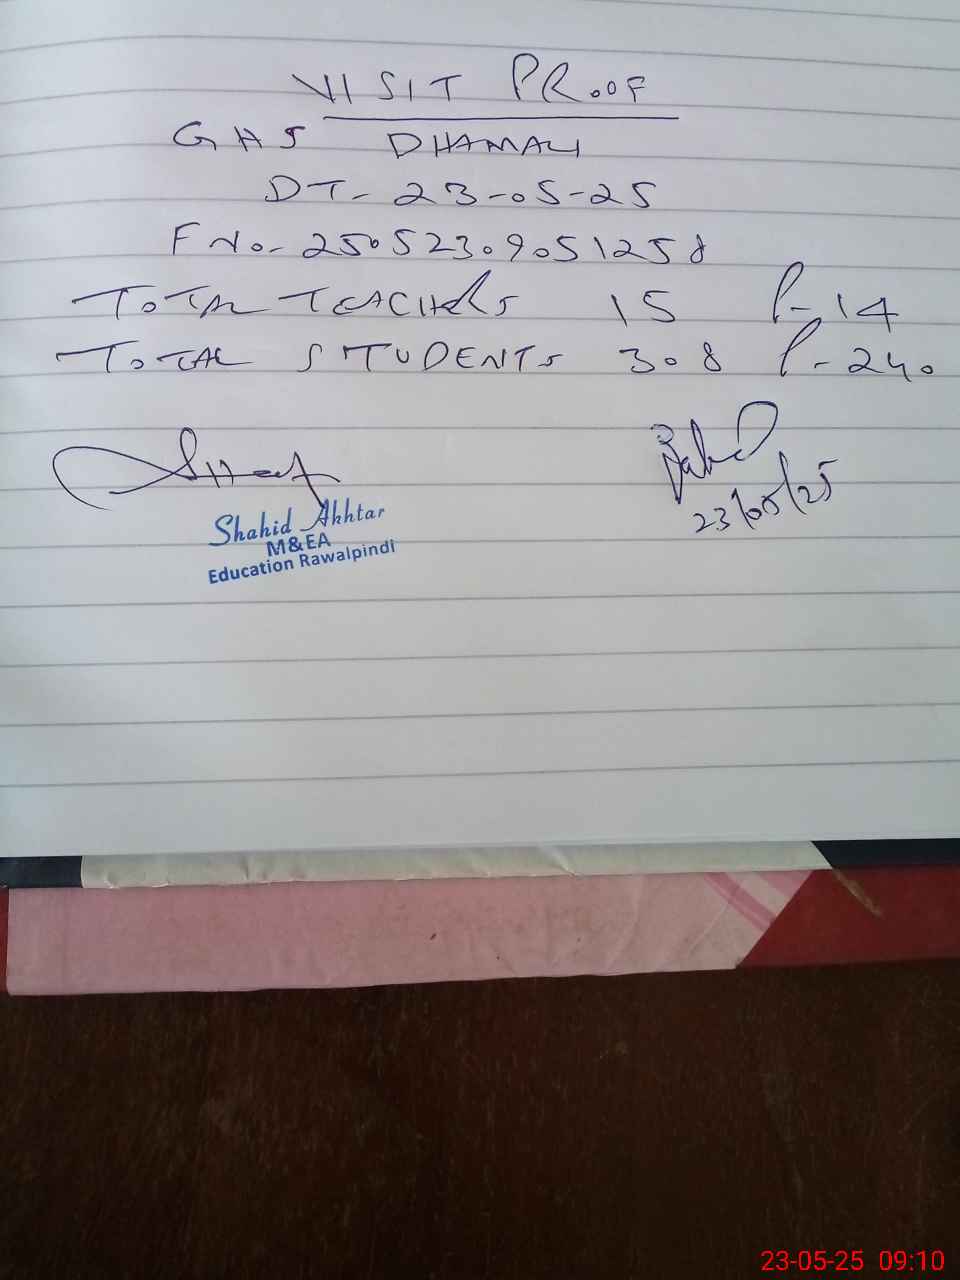 VISIT PROOF
GHS DHAMALI
DT- 23-05-25
F No- 25052309051258
TOTAL TEACHERS 15 P-14
TOTAL STUDENTS 308 P-240
Shahid Akhtar
M&EA
Education Rawalpindi
23/05/25
23-05-25 09:10